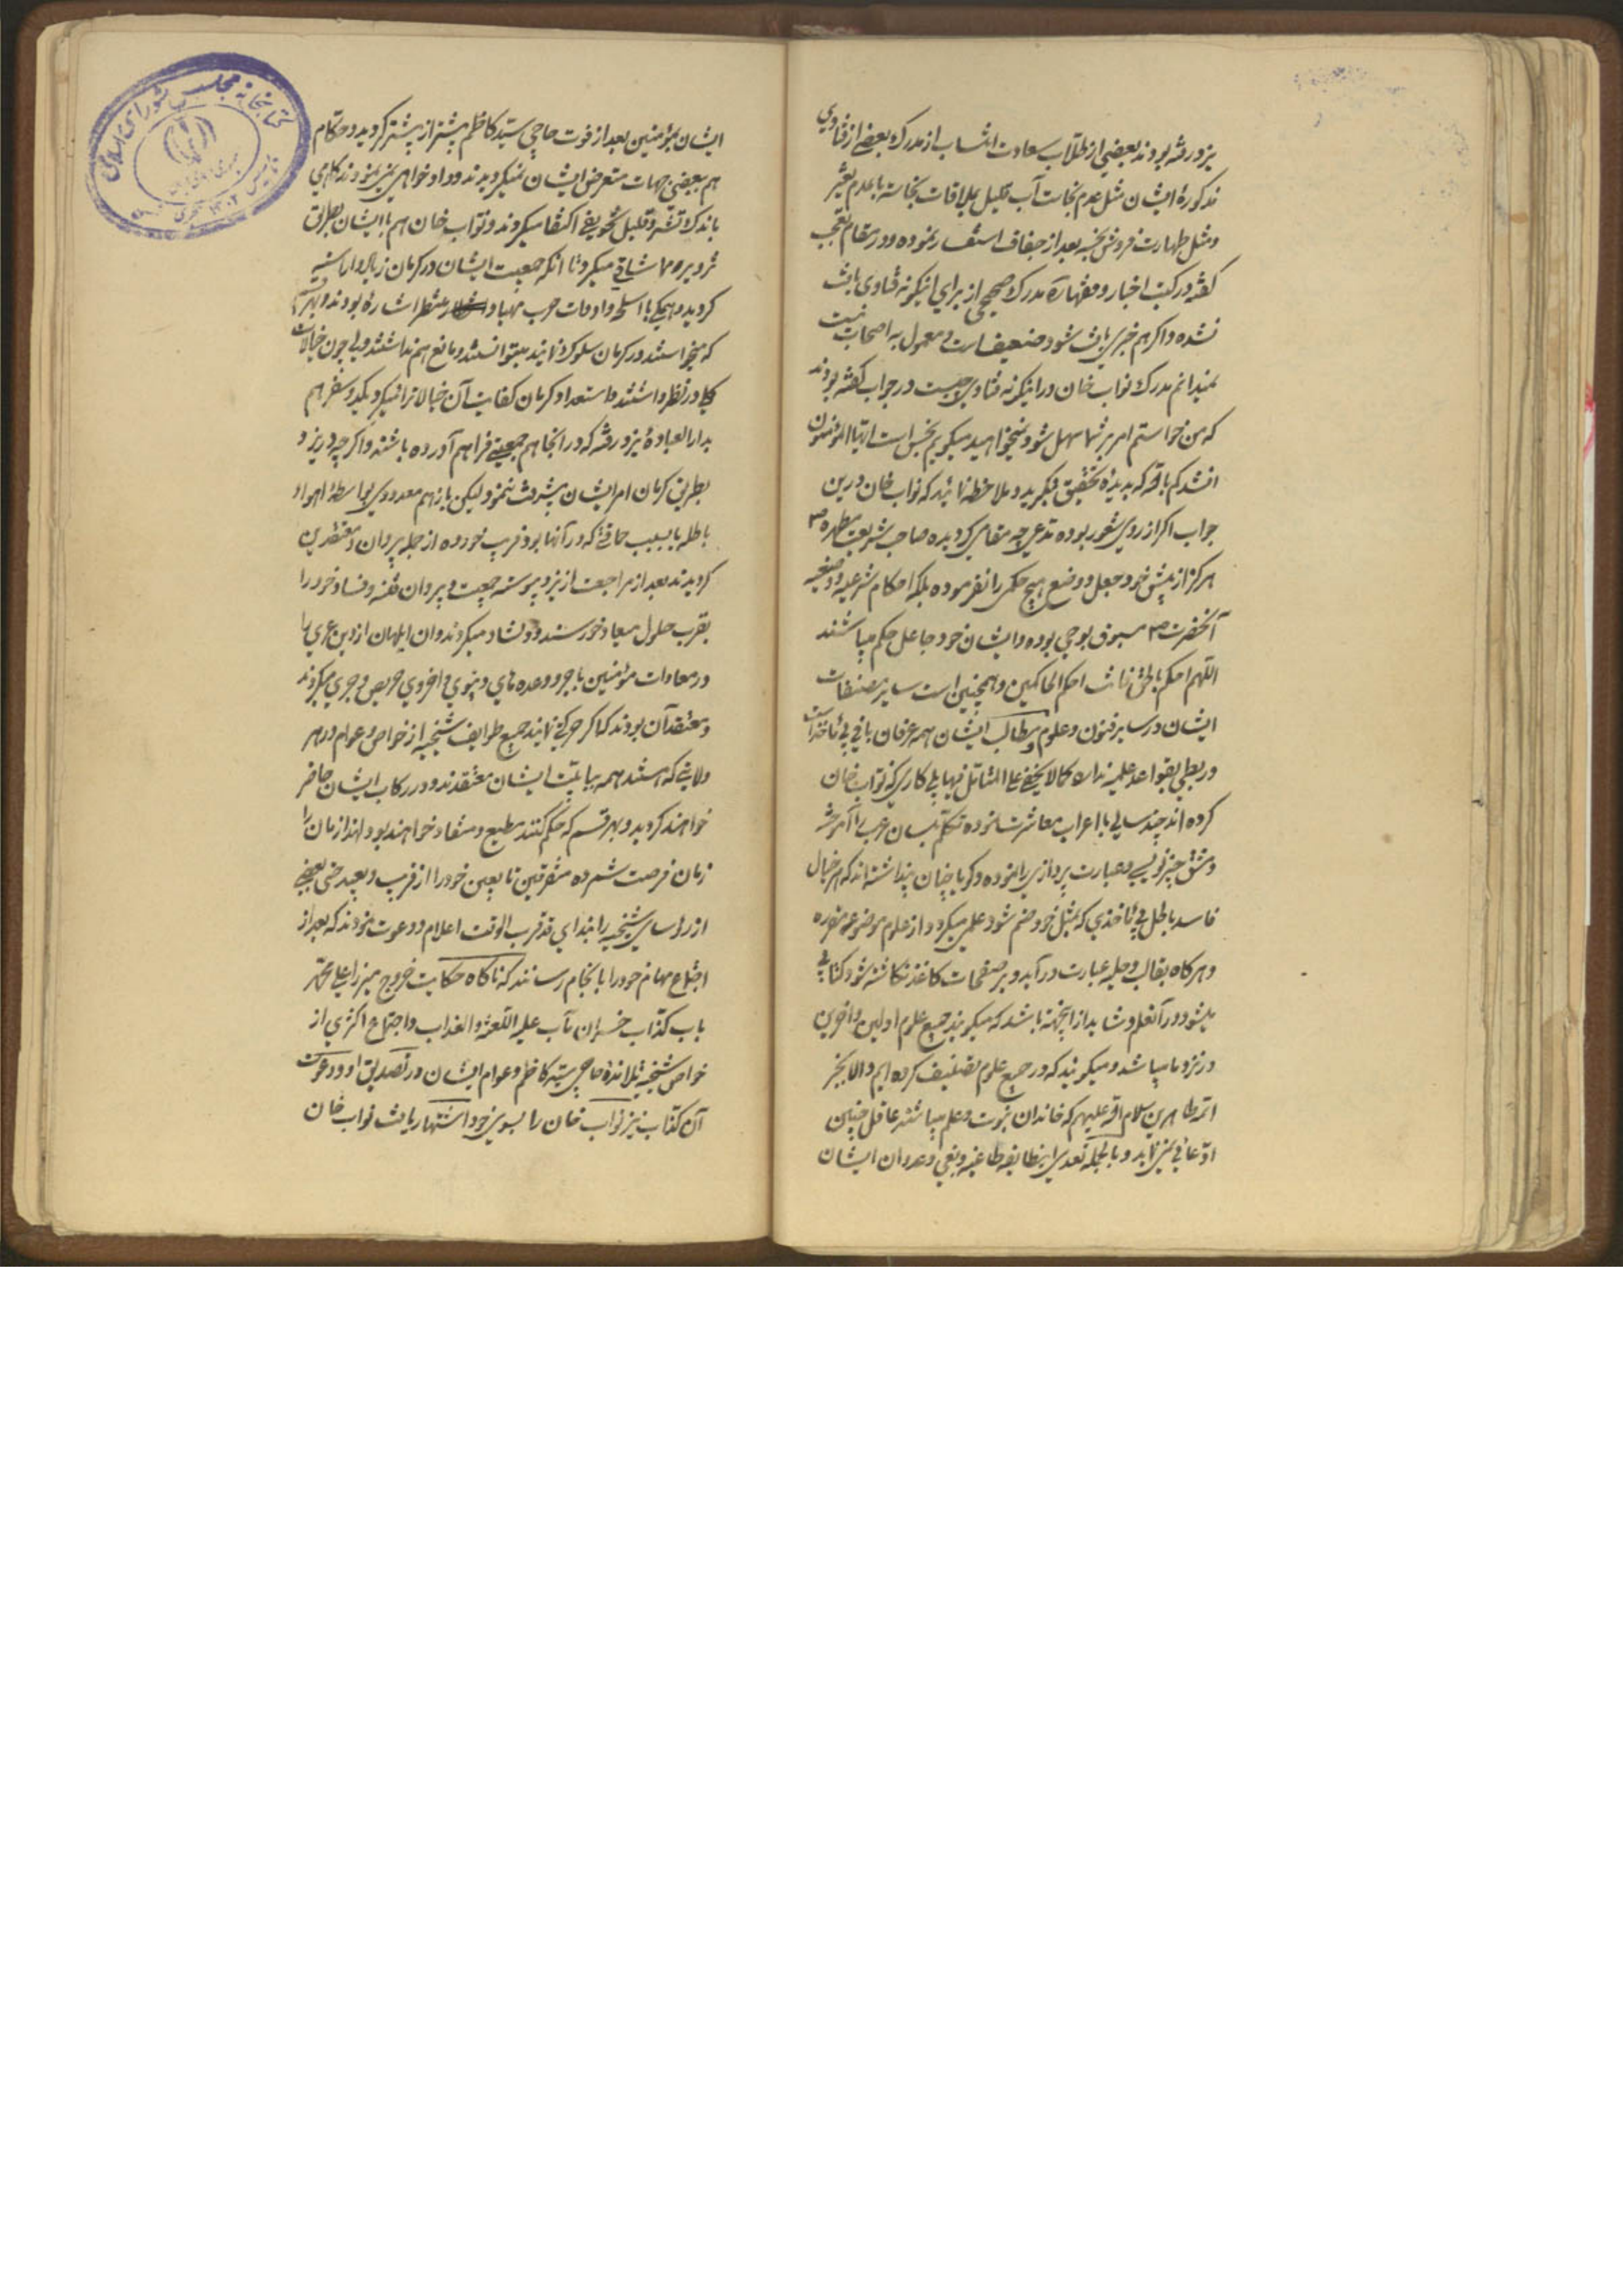 یزد رفته بودند بعضی از طلاب سعادت انتساب از مدرک بعضی از فتاوی
مذکوره ایشان مثل عدم نجاست آب قلیل بملاقات نجاسة با عدم تغییر
و مثل طهارت فروش نجسه بعد از جفاف استفسار نموده و در مقام تعجب
گفته در کتب اخبار و فقهاء مدرک صحیحی از برای اینگونه فتاوی یافت
نشده و اگر هم خبری یافت شود ضعیف است و معمول به اصحاب نیست
نمیدانم مدرک نواب خان در اینگونه فتاوی چیست در جواب گفته بودند
که من خواستم امر بر شما سهل شود نمیخواهید میگویم نجس است ایها المؤمنون
انشدکم بالله که بدیدهٔ تحقیق بنگرید و ملاحظه نمائید که نواب خان درین
جواب اگر از روی شعور بوده مدعی چه مقامی گردیده صاحب شریعت مطهره ص
هرگز از پیش خود جعل و وضع هیچ حکمی را نفرموده بلکه احکام شرعیه وضعیه
آنحضرت ص مسبوق بوحی بوده و ایشان خود جاعل حکم میباشند
اللهم احکم بالحق فانت احکم الحاکمین و همچنین است سایر مصنفات
ایشان در سایر فنون و علوم و مطالب ایشان همه عرفان بافی بی ماخذ است
و ربطی بقواعد علمیه ندارد کما لا یخفی علی المتأمل فیها بلی کاری که نواب خان
کرده اند چند سالی با اعراب معاشرت نموده تکلم بلسان عرب را آموخته
و مشق چیز نویسی و عبارت پردازی را نموده و گویا چنان پنداشته اند که هر خیال
فاسد باطل بی ماخذی که بمثل خود ضم شود علمی میگردد از علوم موضوعه مقرره
و هرگاه بقالب و حلیه عبارت درآید و بر صفحات کاغذ نگاشته شود کتابی
میشود در آنعلم و شاید از اینجهة باشد که میگویند جمیع علوم اولین و آخرین
در نزد ما میباشد و میگویند که در جمیع علوم تصنیف کرده ایم و الا بجز
ائمه طاهرین سلام الله علیهم که خاندان نبوت و علم میباشند عاقل چنین
ادعائی نمینماید و بالجمله تعدی اینطایفه طاغیه و بغی و عدوان ایشان
ایشان بمؤمنین بعد از فوت حاجی سید کاظم بیشتر از پیشتر گردید و حکام
هم ببعضی جهات متعرض ایشان نمیگردیدند و داد خواهی نمی نمودند گاهی
باندک تشر و قلیل تخویفی اکتفا میکردند و نواب خان هم با ایشان بطریق
میکرد تا آنکه جمعیت ایشان در کرمان زیاد و آراسته
گردید و همگی با اسلحه و ادوات حرب مهیا و منتظر اشاره بودند و بهر قسم
که میخواستند در کرمان سلوک نمایند میتوانستند و مانع هم نداشتند ولی چون خیالات
در نظر داشتند و استعداد کرمان کفایت آن خیالات را نمیکرد یکدو سفر هم
بدار العبادهٔ یزد رفته که در آنجا هم جمعیتی فراهم آورده باشند و اگر چه در یزد
بطریق کرمان امر ایشان پیشرفت ننمود لیکن باز هم معدودی بواسطهٔ اهواء
باطله یا بسبب حماقتی که در آنها بود فریب خورده از جمله پیروان و معتقدین
گردیدند بعد از مراجعت از یزد پیوسته جمعیت و پیروان فتنه و فساد خود را
بقرب حلول میعاد خورسند و دلشاد میکردند و آن ابلهان از دین عری را
در معادات مؤمنین باجر و وعده های دنیوی و اخروی حریص و جری میکردند
و معتقد آن بودند که اگر حرکتی نمایند جمیع طوایف شیخیه از خواص و عوام در هر
ولایتی که هستند همه بنیابت ایشان معتقدند و در رکاب ایشان حاضر
خواهند گردید و بهر قسم که حکم کنند مطیع و منقاد خواهند بود لهذا زمان را
زمان فرصت شمرده متفرقین تابعین خود را از قریب و بعید حتی بعضی
از رؤسای شیخیه را بندای قد قرب الوقت اعلام و دعوت نمودند که بعد از
اجتماع مهام خود را بانجام رسانند که ناگاه حکایت خروج میرزا علی محمد
باب کذاب خسران مآب علیه اللعنة و العذاب و اجتماع اکثری از
خواص شیخیه تلامذهٔ حاجی سید کاظم و عوام ایشان در تصدیق او و دعوت
آن کذاب نیز نواب خان را بسوی خود اشتهار یافت نواب خان
کتابخانه مجلس شورای اسلامی